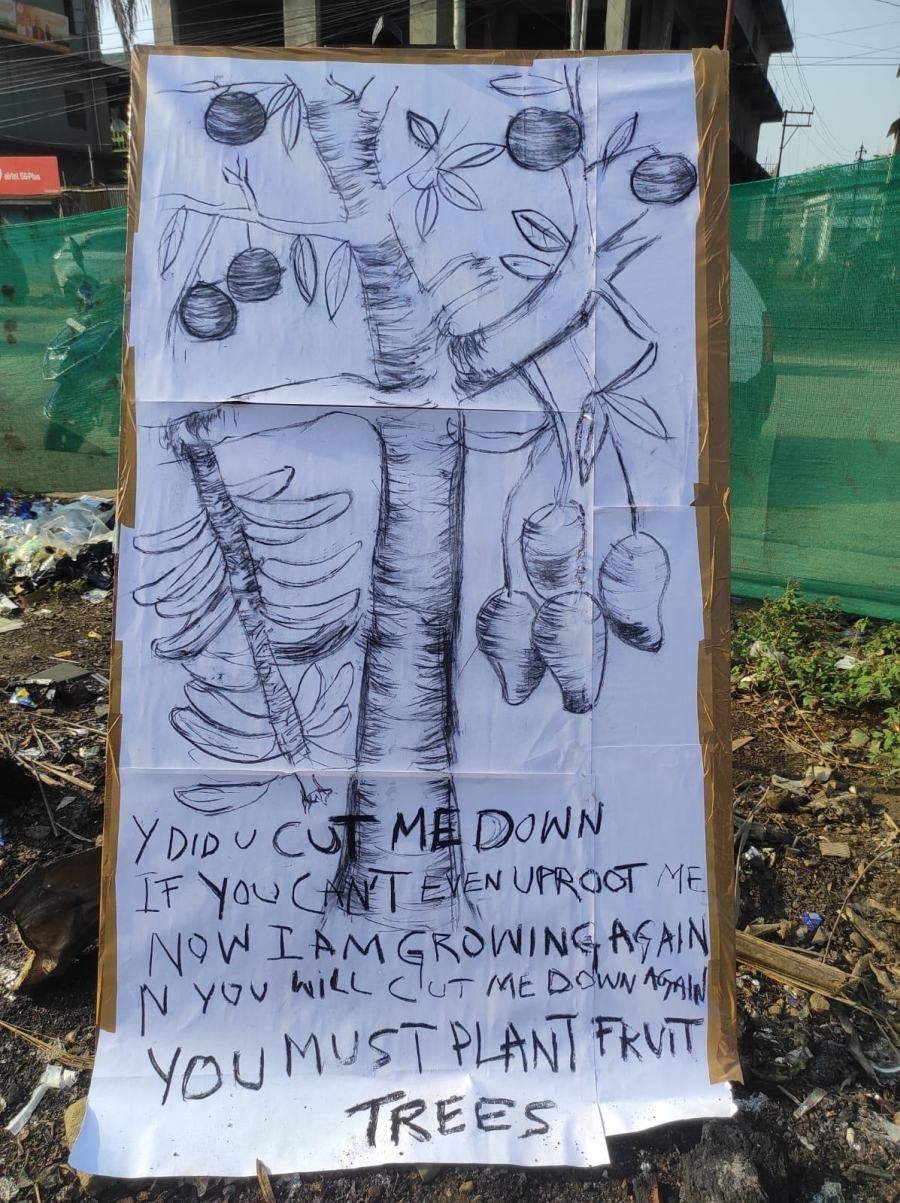 airtel 5G Plus
Y DID U CUT ME DOWN
IF YOU CAN'T EVEN UPROOT ME
NOW I AM GROWING AGAIN
N YOU WILL CUT ME DOWN AGAIN
YOU MUST PLANT FRUIT
TREES